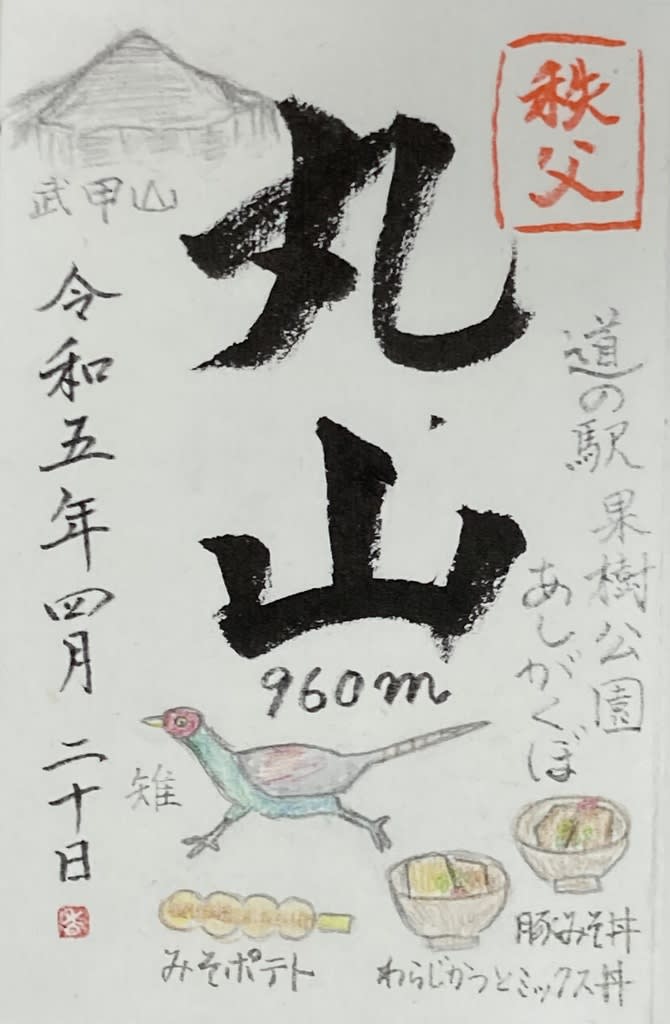 秩父
丸山
960m
道の駅 果樹公園
あしがくぼ
武甲山
令和五年四月二十日
雉
みそポテト
わらじかつとミックス丼
豚みそ丼